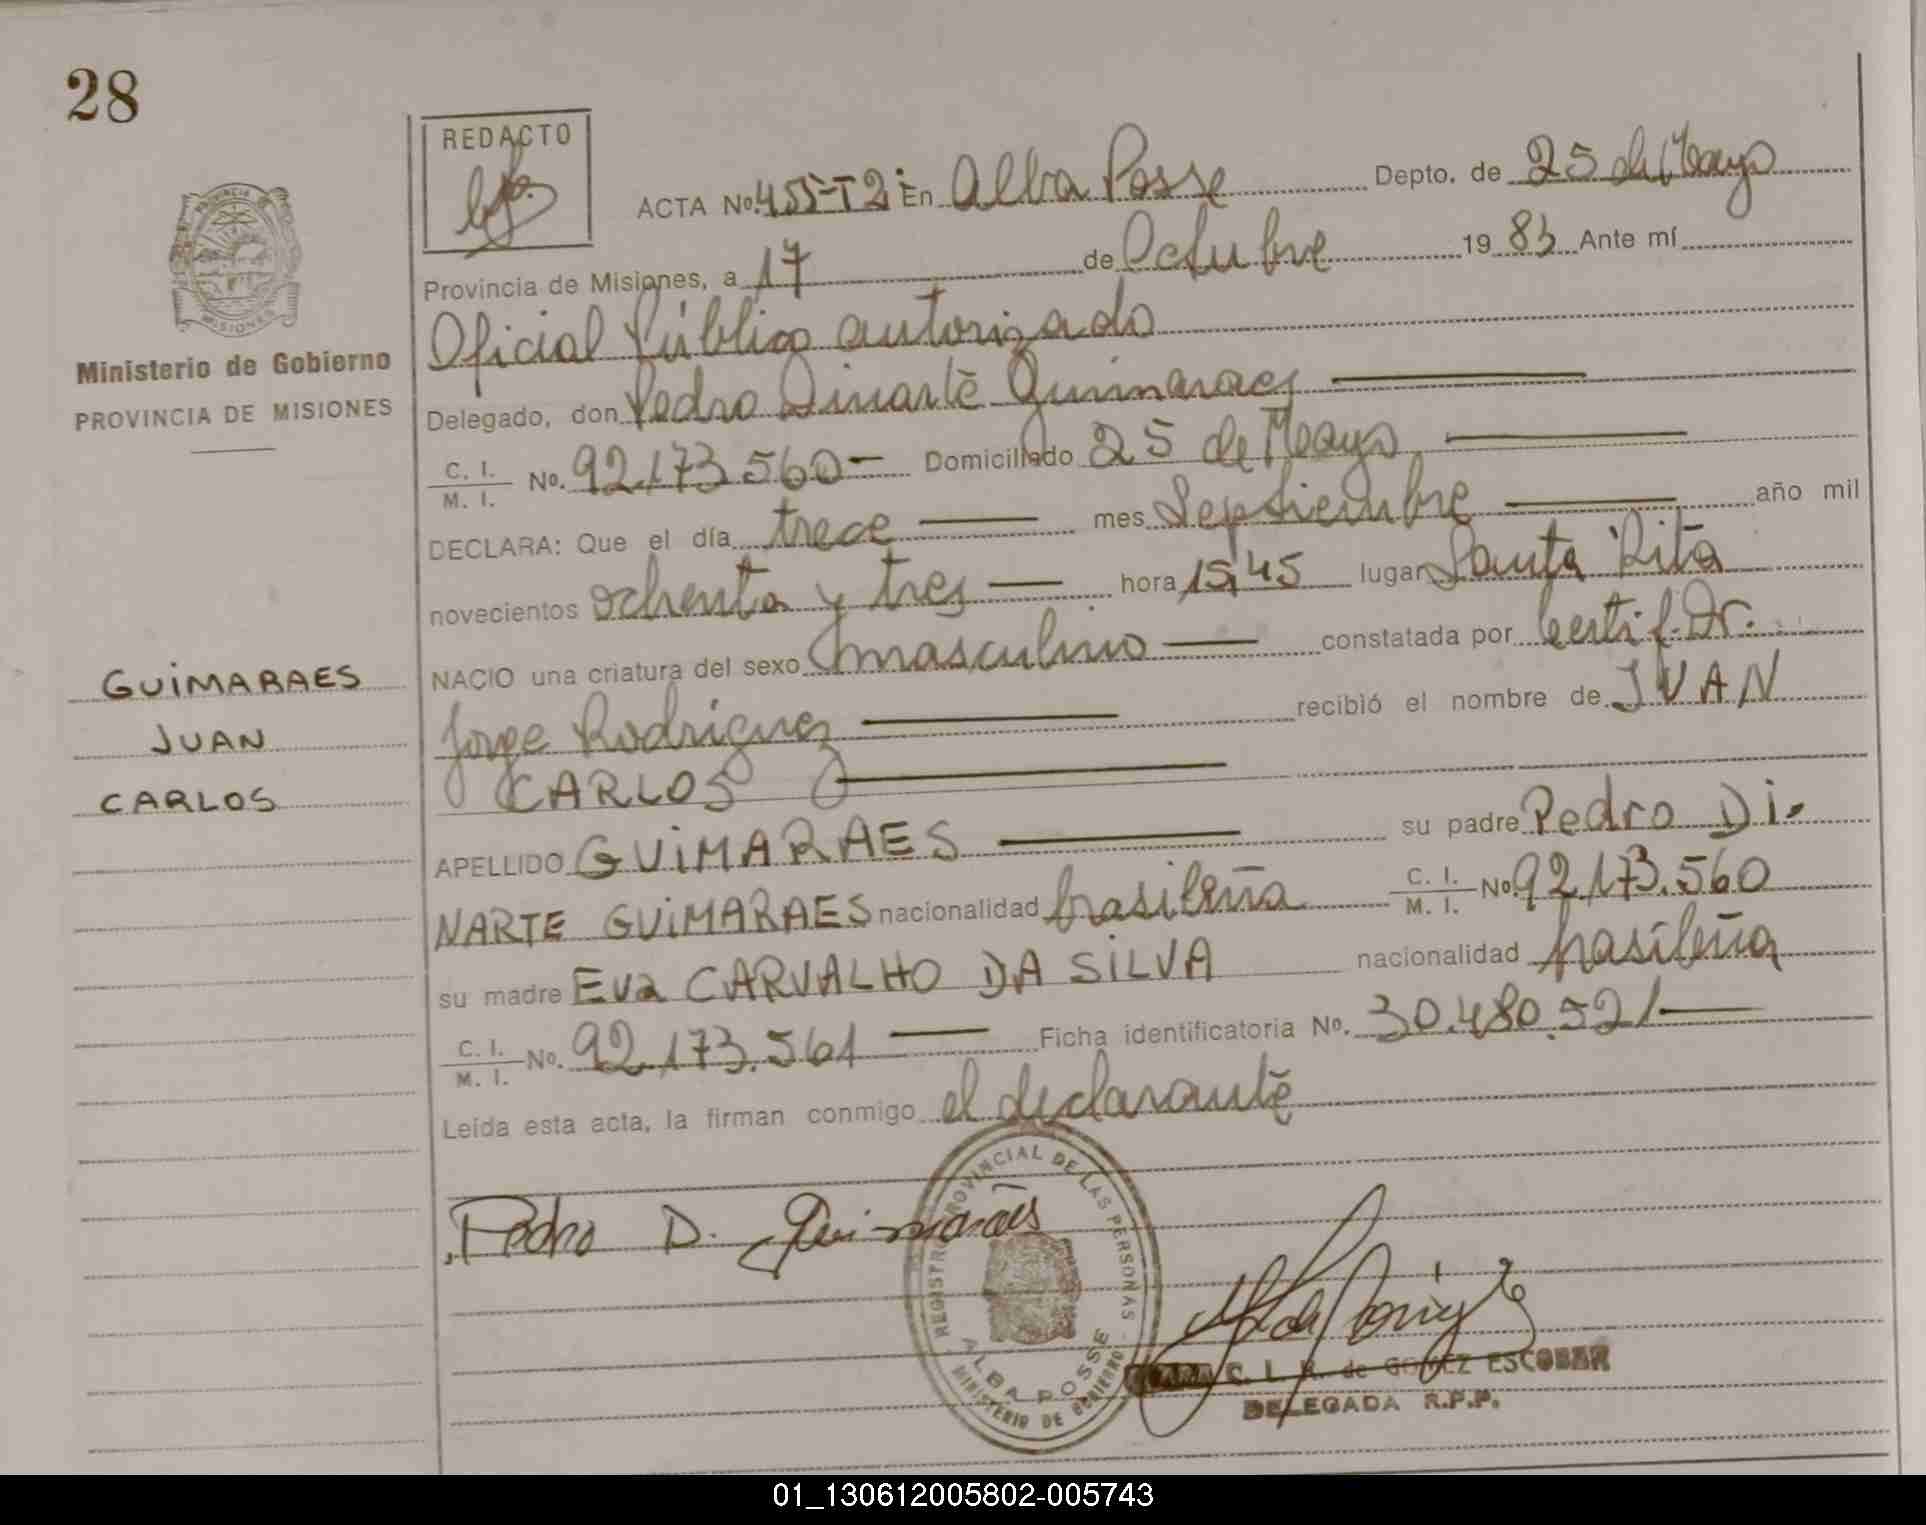 28
REDACTO
PROVINCIA DE
MISIONES
Ministerio de Gobierno
PROVINCIA DE MISIONES
GUiMARAES
JUAN
CARLOS
ACTA No. 455-T2 En Alba Posse Depto. de 25 de Mayo
Provincia de Misiones, a 17 de Octubre 19 83 Ante mí
Oficial Público autorizado
Delegado, don Pedro Dinarte Guimaraes
C. I. / M. I. No. 92.173.560- Domiciliado 25 de Mayo
DECLARA: Que el día trece mes Septiembre año mil
novecientos ochenta y tres hora 15,45 lugar Santa Rita
NACIO una criatura del sexo masculino constatada por Certif. Dr.
Jorge Rodriguez recibió el nombre de JUAN
CARLOS
APELLIDO GUiMARAES su padre Pedro Di-
NARTE GUiMARAES nacionalidad brasileña C. I. / M. I. No. 92.173.560
su madre Eva CARVALHO DA SiLVA nacionalidad brasileña
C. I. / M. I. No. 92.173.561 Ficha identificatoria No. 30.480.521
Leída esta acta, la firman conmigo el declarante
Pedro D. Guimarães
REGISTRO PROVINCIAL DE LAS PERSONAS
ALBA POSSE
MINISTERIO DE GOBIERNO
C. L. R. de GOMEZ ESCOBAR
DELEGADA R.P.P.
01_130612005802-005743